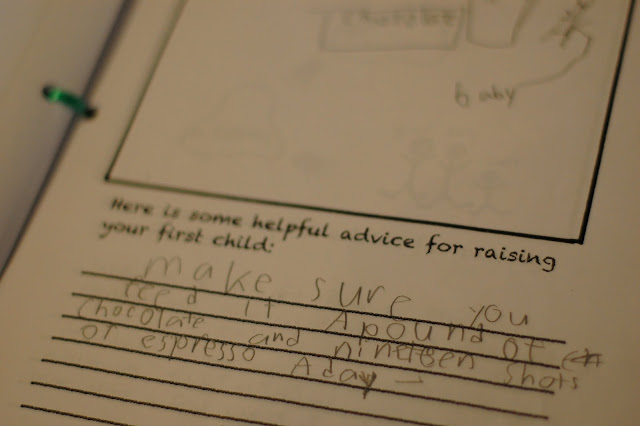 chocolat
baby
Here is some helpful advice for raising
your first child:
make sure you
feed it A pound of
chocolate and nineteen shots
of espresso A day